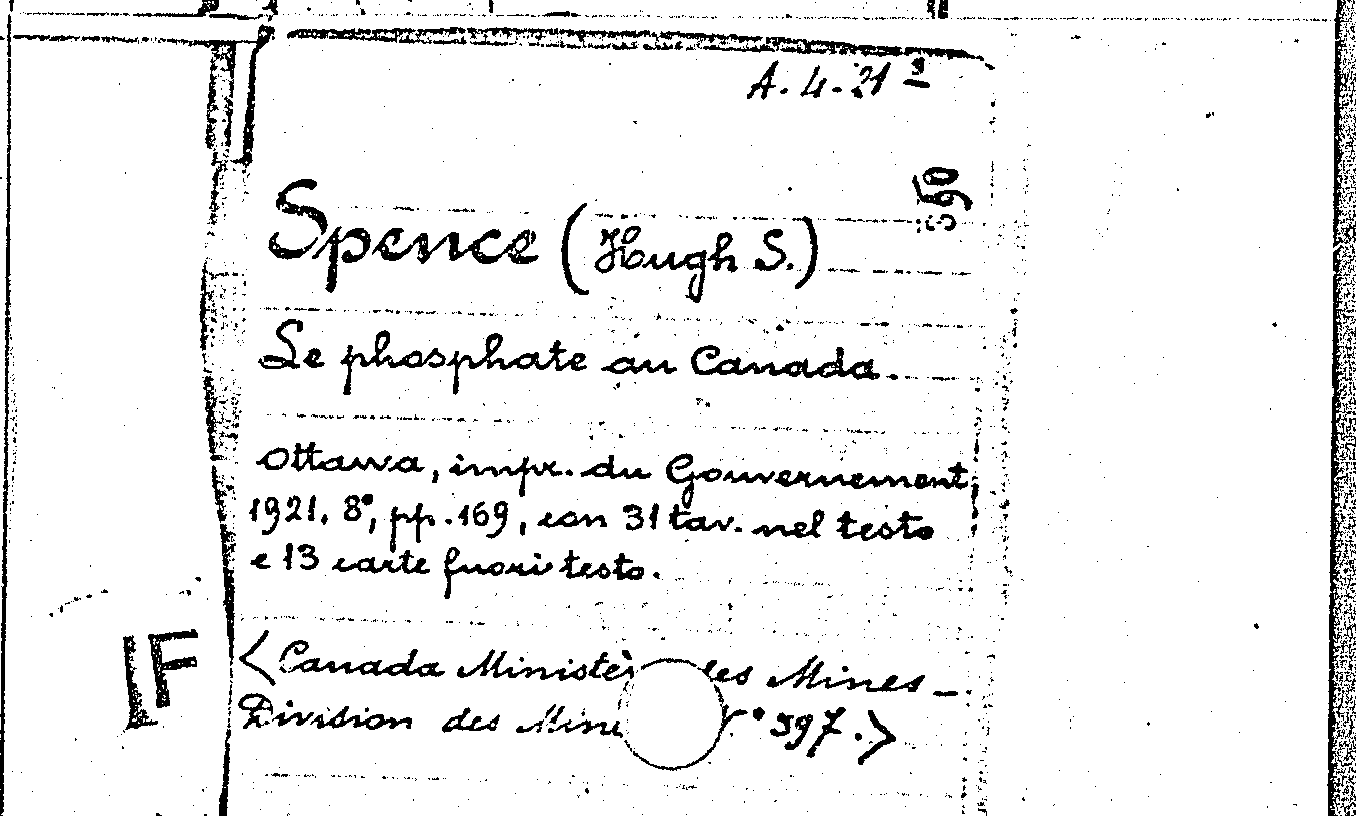 A. 4. 21 3
Spence (Hugh S.)
Le phosphate au Canada.
Ottawa, impr. du Gouvernement
1921. 8°, pp. 169, con 31 tav. nel testo
e 13 carte fuori testo.
<Canada Ministè des Mines -
Division des Mine ° 397.>
IF